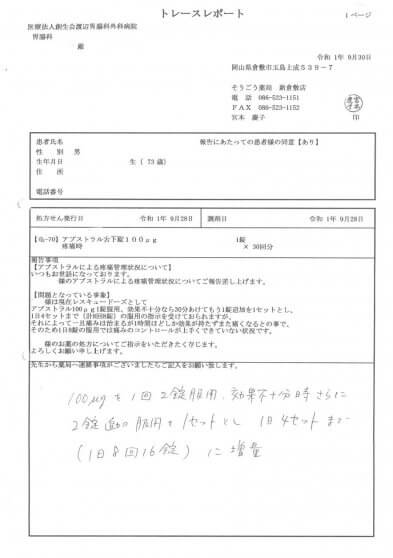 トレースレポート
1ページ
医療法人創生会渡辺胃腸科外科病院
胃腸科
殿
令和 1年 9月30日
岡山県倉敷市玉島上成539-7
そうごう薬局 新倉敷店
電 話 086-523-1151
FAX 086-523-1152
宮本 慶子 印
患者氏名 報告にあたっての患者様の同意【あり】
性 別 男
生年月日 生 ( 73 歳)
住 所
電話番号
処方せん発行日 令和 1年 9月28日 調剤日 令和 1年 9月28日
アブストラル舌下錠100μg 1錠
疼痛時 × 30回分
報告事項
【アブストラルによる疼痛管理状況について】
いつもお世話になっております。
様のアブストラルによる疼痛管理状況についてご報告差し上げます。
【問題となっている事象】
様は現在レスキュードーズとして
アブストラル100μg1錠服用、効果不十分なら30分あけてもう1錠追加を1セットとし、
1日4セットまで(計8回8錠)の服用の指示を受けておられますが、
それによって一旦痛みは治まるが1時間ほどしか効果が持たずまた痛くなるとの事で、
そのため1日8錠の服用では痛みのコントロールが上手くできていない状況です。
様のお薬の処方についてご指示をいただきたく存じます。
よろしくお願い申し上げます。
先生から薬局へ連絡事項がございましたらご記入をお願い致します。
100μgを1回2錠服用、効果不十分時さらに
2錠追加服用を1セットとし 1日4セットまで
(1日8回16錠) に増量